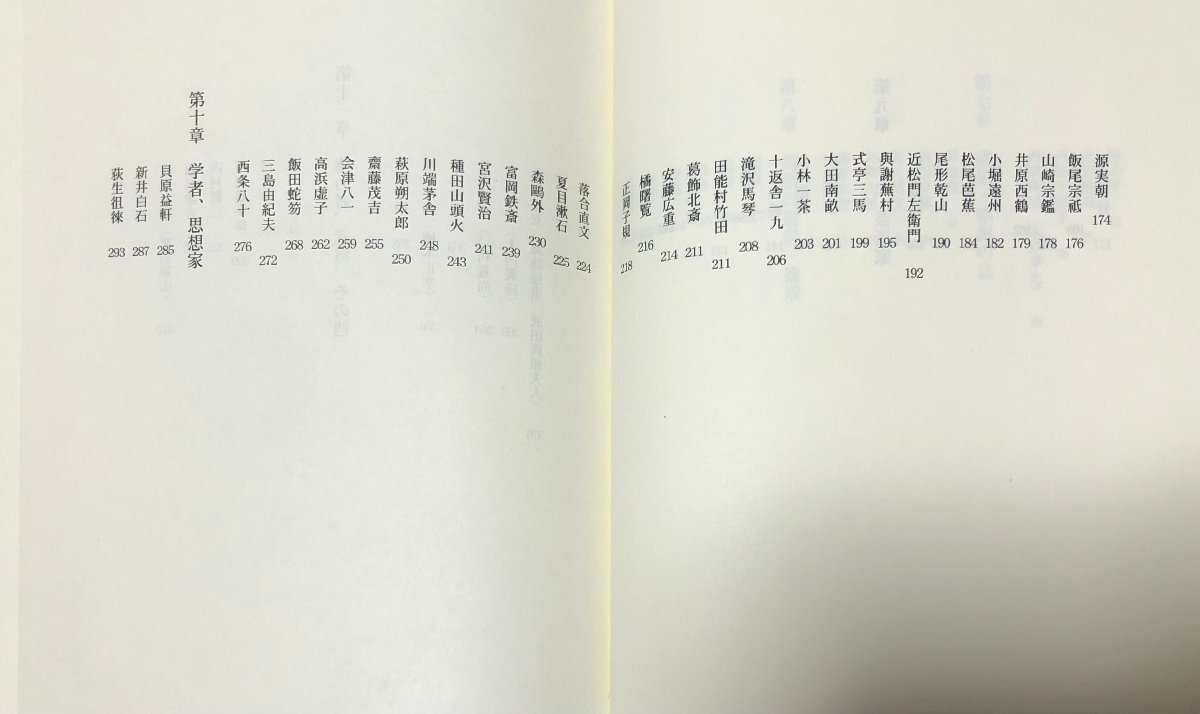 源実朝 174
飯尾宗祇 176
山崎宗鑑 178
井原西鶴 179
小堀遠州 182
松尾芭蕉 184
尾形乾山 190
近松門左衛門 192
與謝蕪村 195
式亭三馬 199
大田南畝 201
小林一茶 203
十返舎一九 206
滝沢馬琴 208
田能村竹田 211
葛飾北斎 211
安藤広重 214
橘曙覧 216
正岡子規 218
落合直文 224
夏目漱石 225
森鷗外 230
富岡鉄斎 239
宮沢賢治 241
種田山頭火 243
川端茅舎 248
萩原朔太郎 250
齋藤茂吉 255
会津八一 259
高浜虚子 262
飯田蛇笏 268
三島由紀夫 272
西条八十 276
第十章 学者、思想家
貝原益軒 285
新井白石 287
荻生徂徠 293